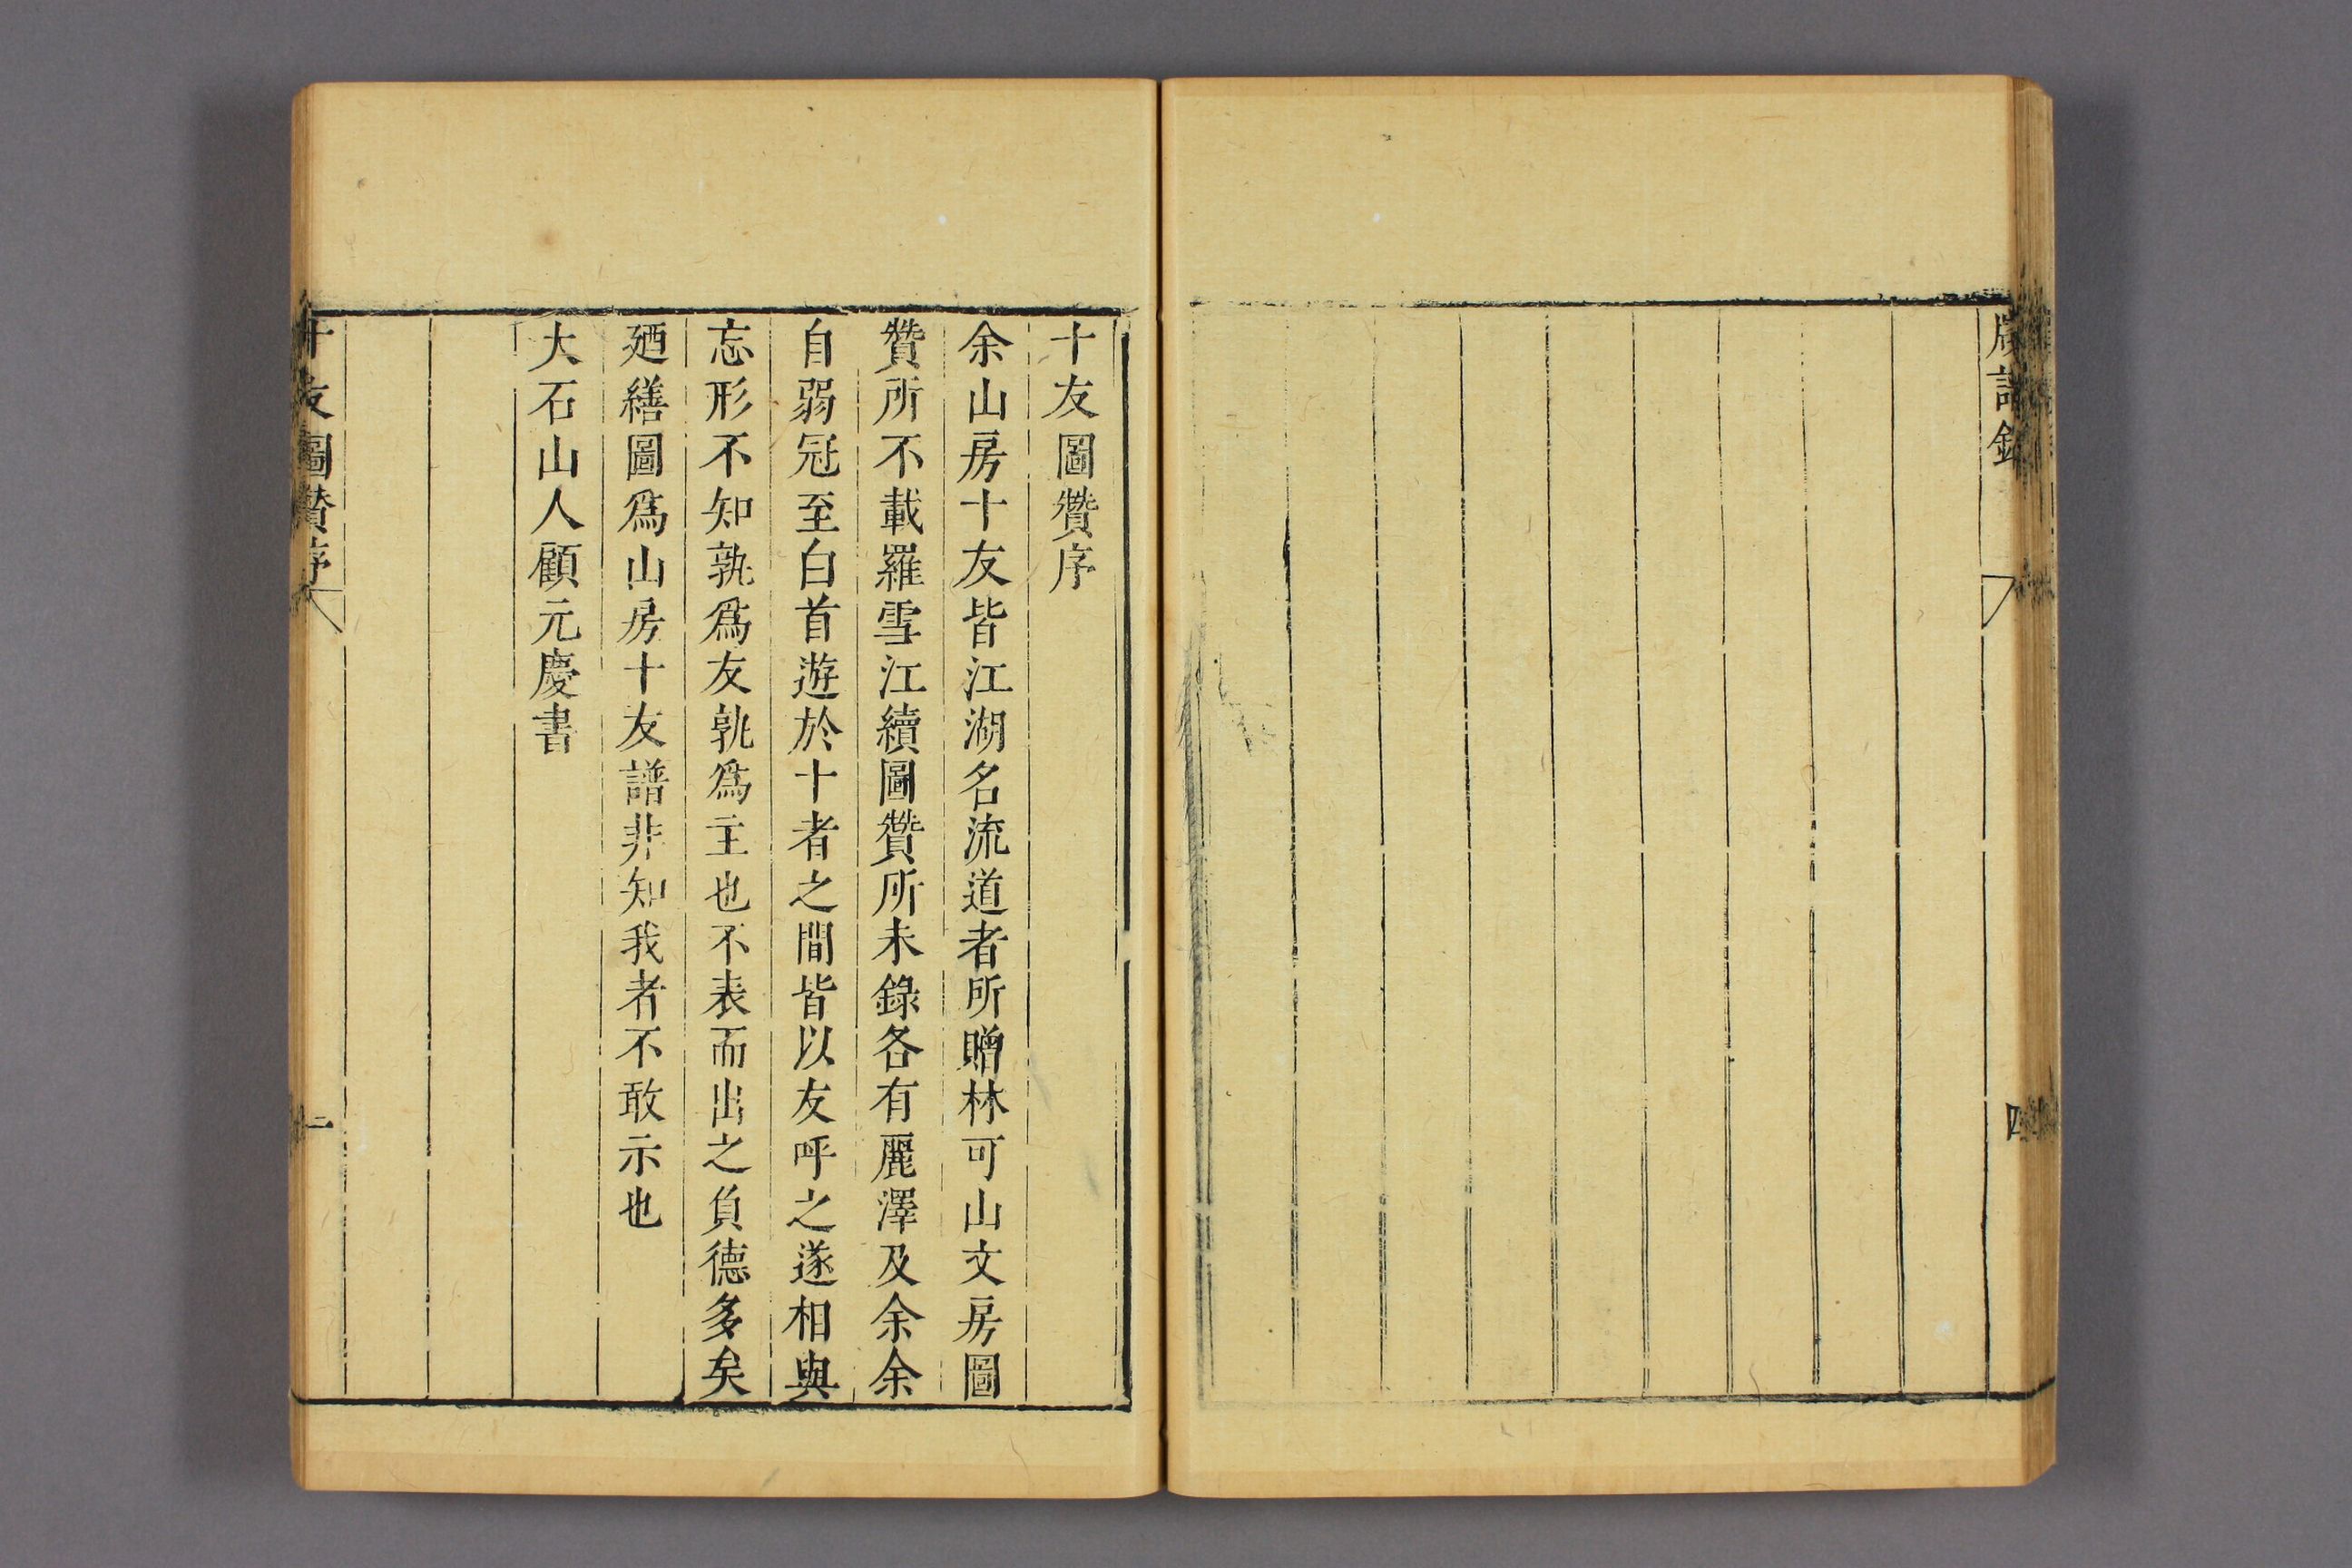 四
十友圖贊序
余山房十友皆江湖名流道者所贈林可山文房圖
贊所不載羅雪江續圖贊所未錄各有麗澤及余余
自弱冠至白首遊於十者之間皆以友呼之遂相與
忘形不知孰爲友孰爲主也不表而出之負德多矣
廼繕圖爲山房十友譜非知我者不敢示也
大石山人顧元慶書
十友圖贊序
一